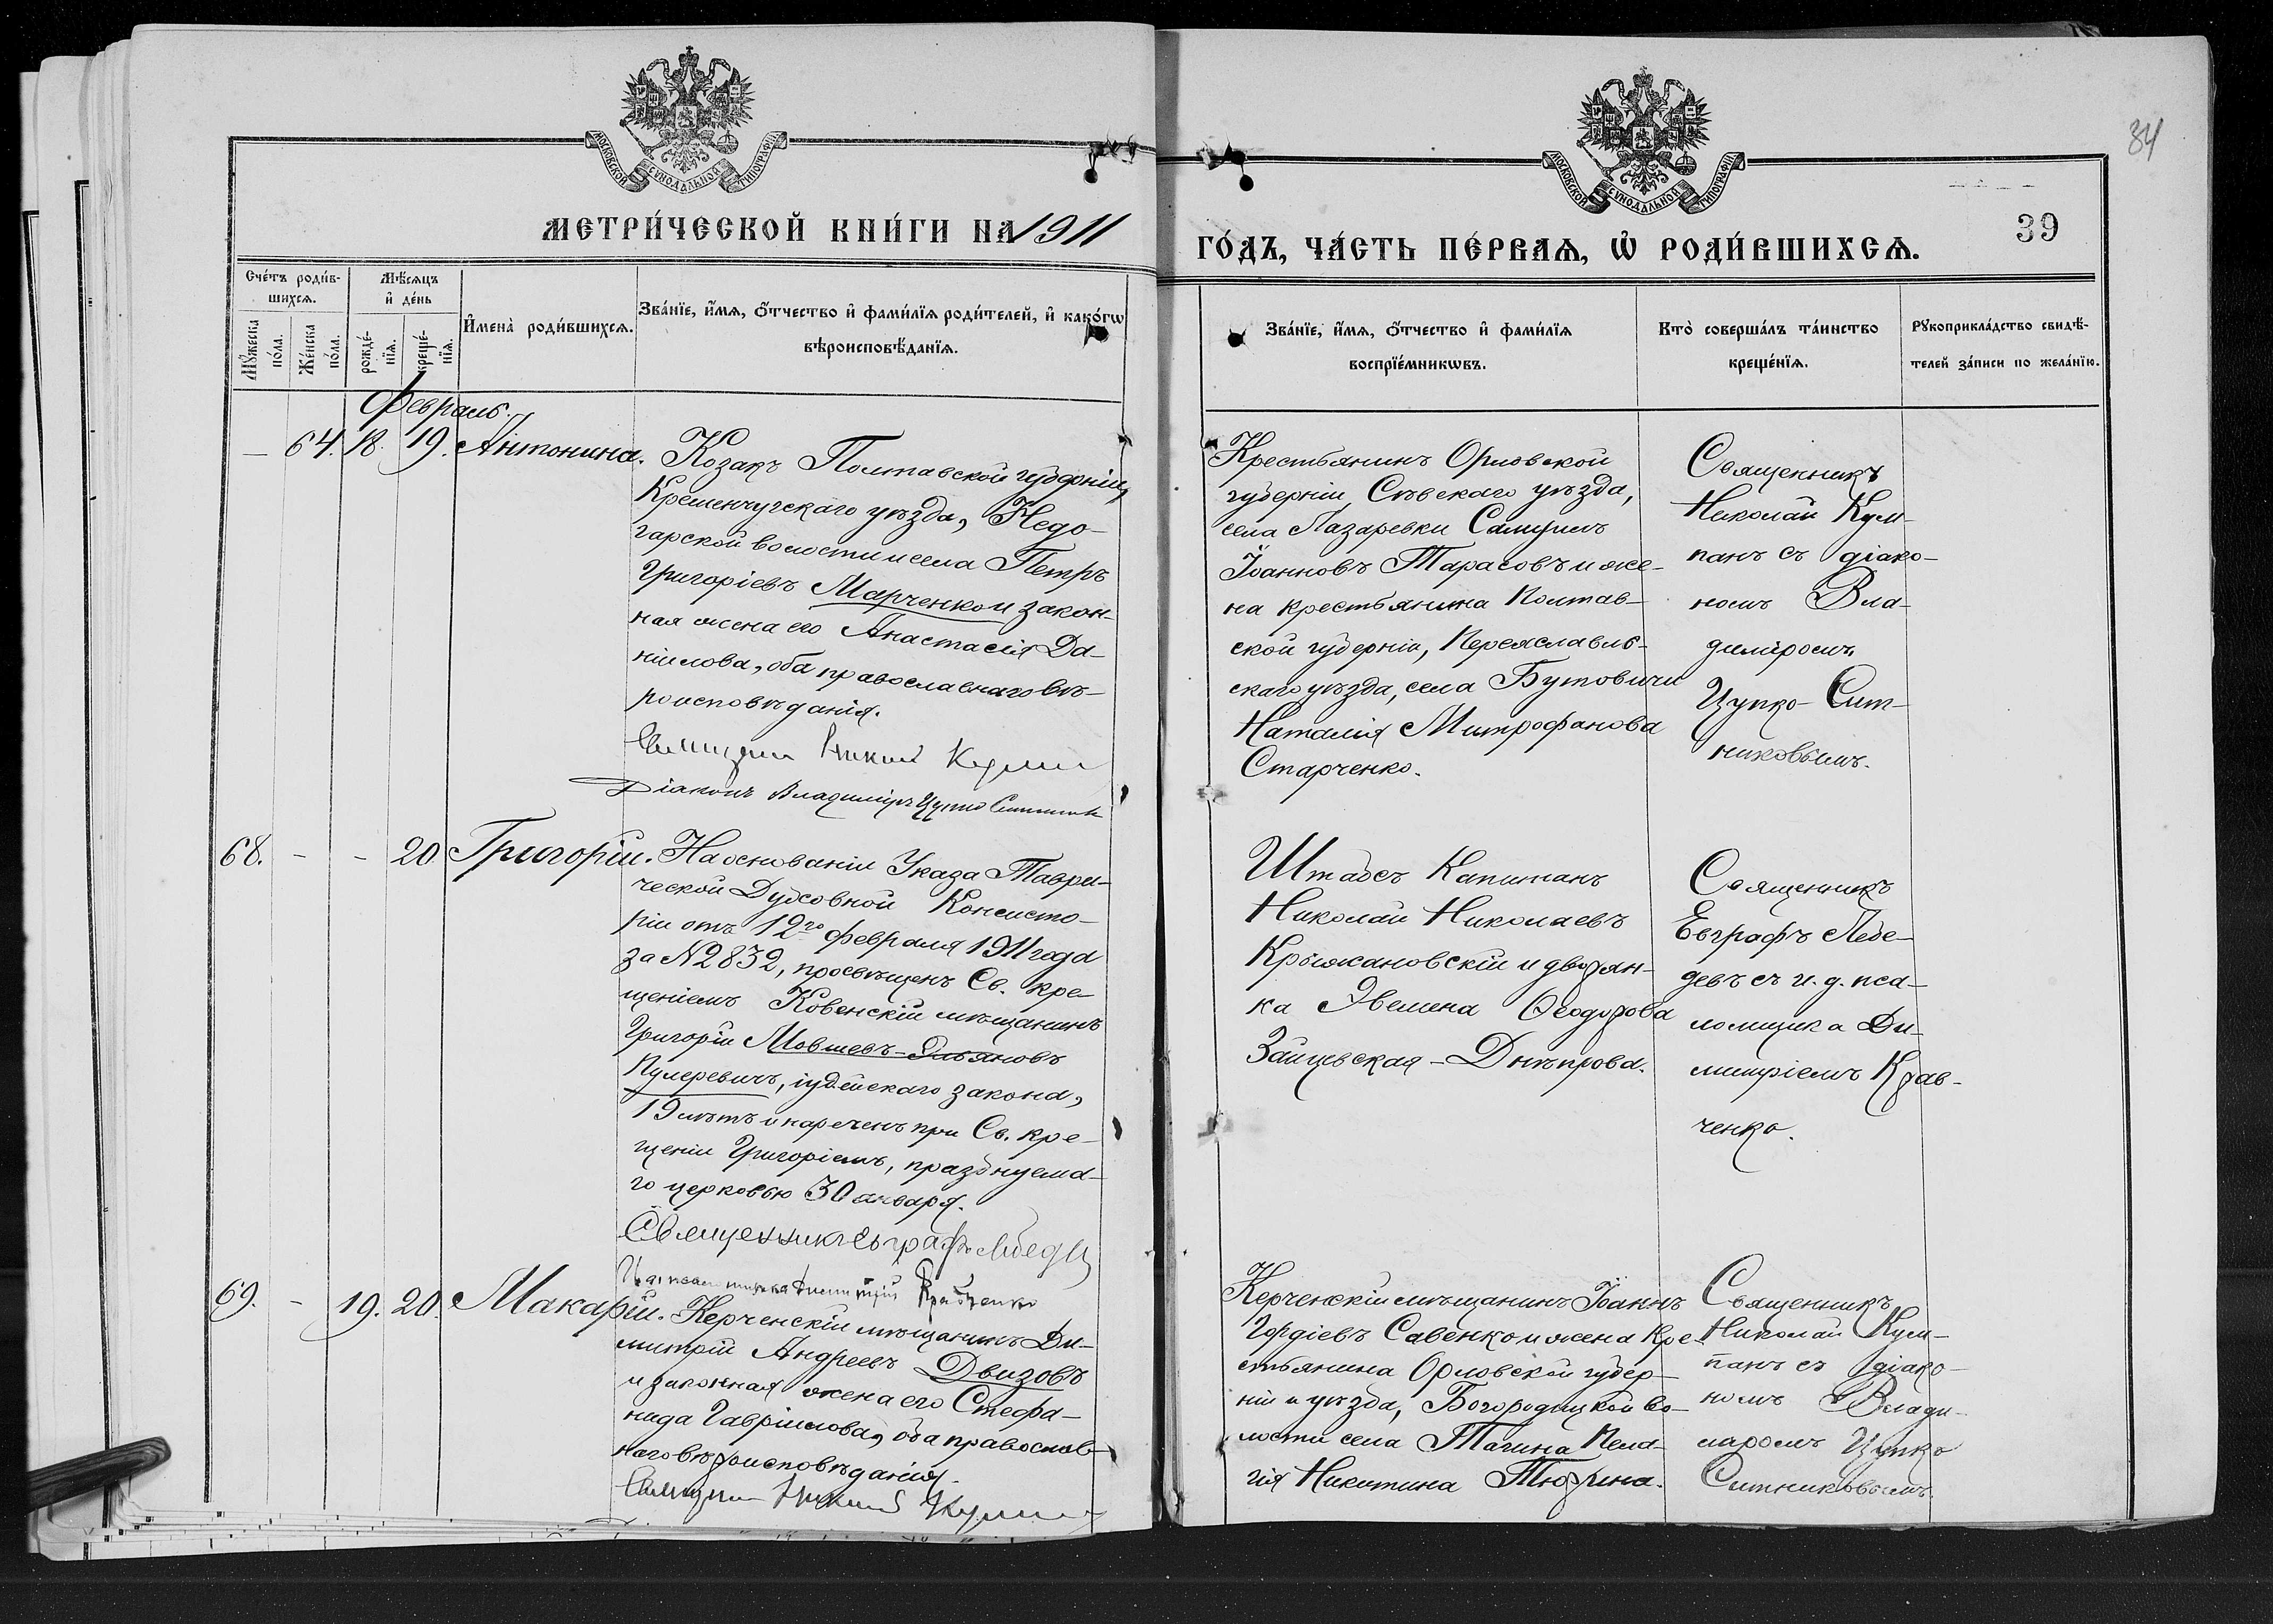 МОСКОВСКОЙ СѴНОДАЛЬНОЙ ТИПОГРАФІИ
МЕТРИ́ЧЕСКОЙ КНИ́ГИ НА 1911
Сче́тъ роди́в-
шихсѧ.
Мꙋ́жеска
по́ла.
Же́нска
по́ла.
Мѣ́сѧцъ
и҆ де́нь
рожде́-
нїѧ.
креще́-
нїѧ.
И҆мена̀ роди́вшихсѧ.
Зва́нїе, и҆́мѧ, ѻ҆́тчество и҆ фами́лїѧ роди́телей, и҆ како́гѡ
вѣроисповѣ́данїѧ.
Февраль.
— 64. 18. 19. Антонина.
Козакъ Полтавской губерніи,
Кременчугскаго уѣзда, Недо-
гарской волости и села Петръ
Григоріевъ Марченко и закон-
ная жена его Анастасія Да-
ніилова, оба православнаго вѣ-
роисповѣданія.
Діаконъ Владиміръ Цупко
68. - - 20. Григорій.
На основаніи Указа Таври-
ческой Духовной Консисто-
ріи отъ 12го февраля 1911 года
за N 2832, просвѣщенъ Св. кре-
щеніемъ Ковенскій мѣщанинъ
Григорій Мовшевъ-
іудейскаго закона,
19 лѣтъ и нареченъ при Св. кре-
щеніи Григоріемъ, празднуема-
го церковью 30 января.
Священникъ Евграфъ Лебедевъ
И. д. псаломщика Димитрій Кравченко
69. - 19. 20. Макарій.
Керченскій мѣщанинъ Ди-
митрій Андреевъ Двизовъ
и законная жена его Стефа-
нида Гавріилова, оба православ-
наго вѣроисповѣданія.
МОСКОВСКОЙ СѴНОДАЛЬНОЙ ТИПОГРАФІИ
34
39
ГО́ДЪ, ЧА́СТЬ ПЕ́РВАѦ, Ѡ҆ РОДИ́ВШИХСѦ.
Зва́нїе, и҆́мѧ, ѻ҆́тчество и҆ фами́лїѧ
воспрїе́мникѡвъ.
Кто̀ соверша́лъ та́инство
креще́нїѧ.
Рꙋкоприкла́дство свидѣ́-
телей за́писи по жела́нїю.
Крестьянинъ Орловской
губерніи, Сѣвскаго уѣзда,
села Лазаревки Самуилъ
Іоанновъ Тарасовъ и же-
на крестьянина Полтав-
ской губерніи, Переяславль-
скаго уѣзда, села Бутовичи
Наталія Митрофанова
Старченко.
Священникъ
Николай Кум-
панъ съ діако-
номъ Вла-
диміромъ
Цупко-Сит-
никовымъ.
Штабсъ Капитанъ
Николай Николаевъ
Крыжановскій и дворян-
ка Эвелина Ѳеодорова
Зайцевская-Днѣпрова.
Священникъ
Евграфъ Лебе-
девъ съ и. д. пса-
ломщика Ди-
митріемъ Крав-
ченко.
Керченскій мѣщанинъ Іоаннъ
Гордіевъ Савенко и жена кре-
стьянина Орловской губер-
ніи и уѣзда, Богородицкой во-
лости села Тагина Пела-
гія Никитина Тюрина.
Священникъ
Николай Кум-
панъ съ діако-
номъ Влади-
міромъ Цупко
Ситниковымъ.